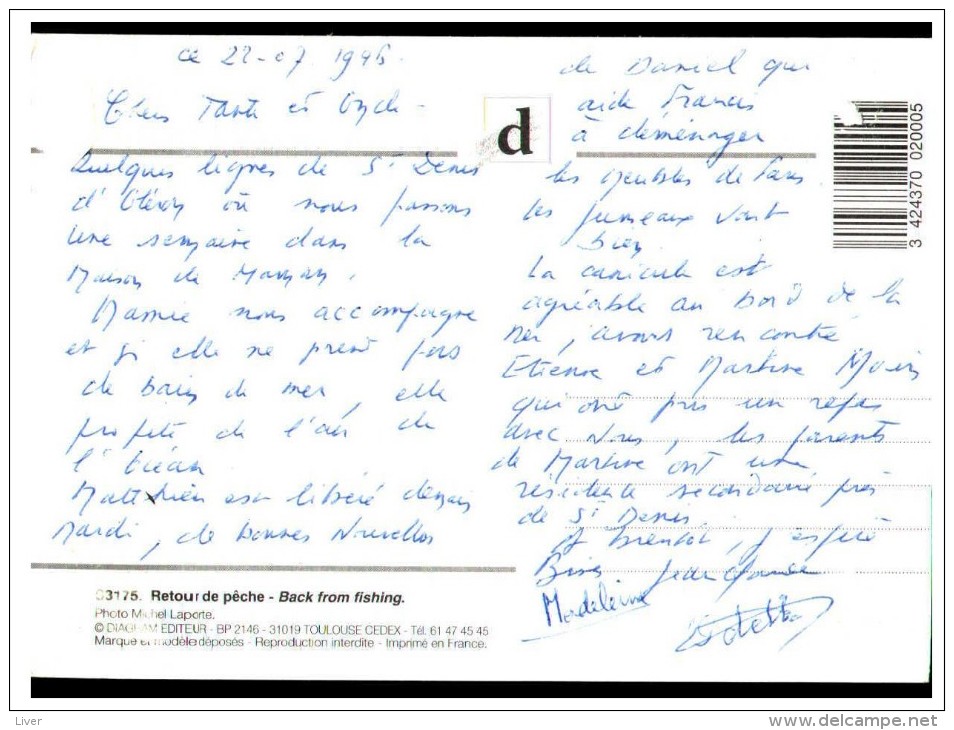 ce 22-07 1995.
Chers Tante et Oncle -
Quelques lignes de St Denis
d'Oléron où nous passons
une semaine dans la
Maison de Maman.
Mamie nous accompagne
et si elle ne prend pas
de bain de mer, elle
profite de l'air de
l'Océan
Matthieu est libéré demain
Mardi, de bonnes Nouvelles
de Daniel qui
aide Francis
à déménager
les meubles de Paris.
Les jumeaux vont
bien.
La canicule est
agréable au bord de la
mer, avons rencontré
Etienne et Martine
qui ont pris un repas
avec nous, les parents
de Martine ont une
résidence secondaire près
de St Denis.
A bientôt, j'espère
Bises Jean Claude
Madeleine
d
3 424370 020005
3175. Retour de pêche - Back from fishing.
Photo Michel Laporte.
© DIAGRAM EDITEUR - BP 2146 - 31019 TOULOUSE CEDEX - Tél. 61 47 45 45
Marque et modèle déposés - Reproduction interdite - Imprimé en France.
Liver
delcampe.net